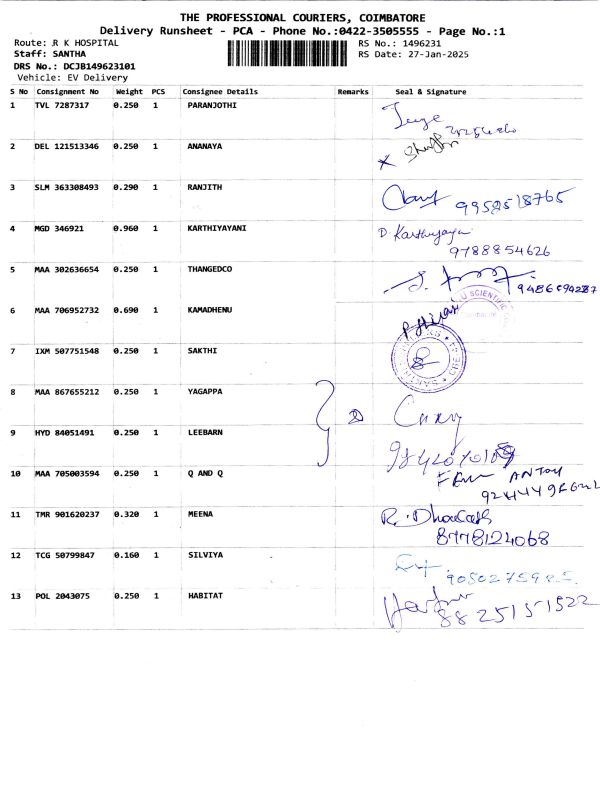 THE PROFESSIONAL COURIERS, COIMBATORE
Delivery Runsheet - PCA - Phone No.:0422-3505555 - Page No.:1
Route: R K HOSPITAL
Staff: SANTHA
DRS No.: DCJB149623101
Vehicle: EV Delivery
RS No.: 1496231
RS Date: 27-Jan-2025
S No Consignment No Weight PCS Consignee Details Remarks Seal & Signature
1 TVL 7287317 0.250 1 PARANJOTHI
2 DEL 121513346 0.250 1 ANANYA
3 SLM 363308493 0.290 1 RANJITH 9952518765
4 MGD 346921 0.960 1 KARTHIYAYANI D. Karthiyayani
9788854626
5 MAA 302636654 0.250 1 THANGEDCO
6 MAA 706952732 0.690 1 KAMADHENU
7 IXM 507751548 0.250 1 SAKTHI
8 MAA 867655212 0.250 1 YAGAPPA
9 HYD 84051491 0.250 1 LEEBARN
10 MAA 705003594 0.250 1 Q AND Q
11 TMR 901620237 0.320 1 MEENA
8778124068
12 TCG 50799847 0.160 1 SILVIYA
13 POL 2043075 0.250 1 HABITAT
8825151522